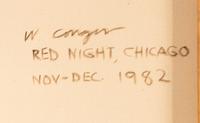 W. Conger
RED NIGHT, CHICAGO
NOV-DEC. 1982